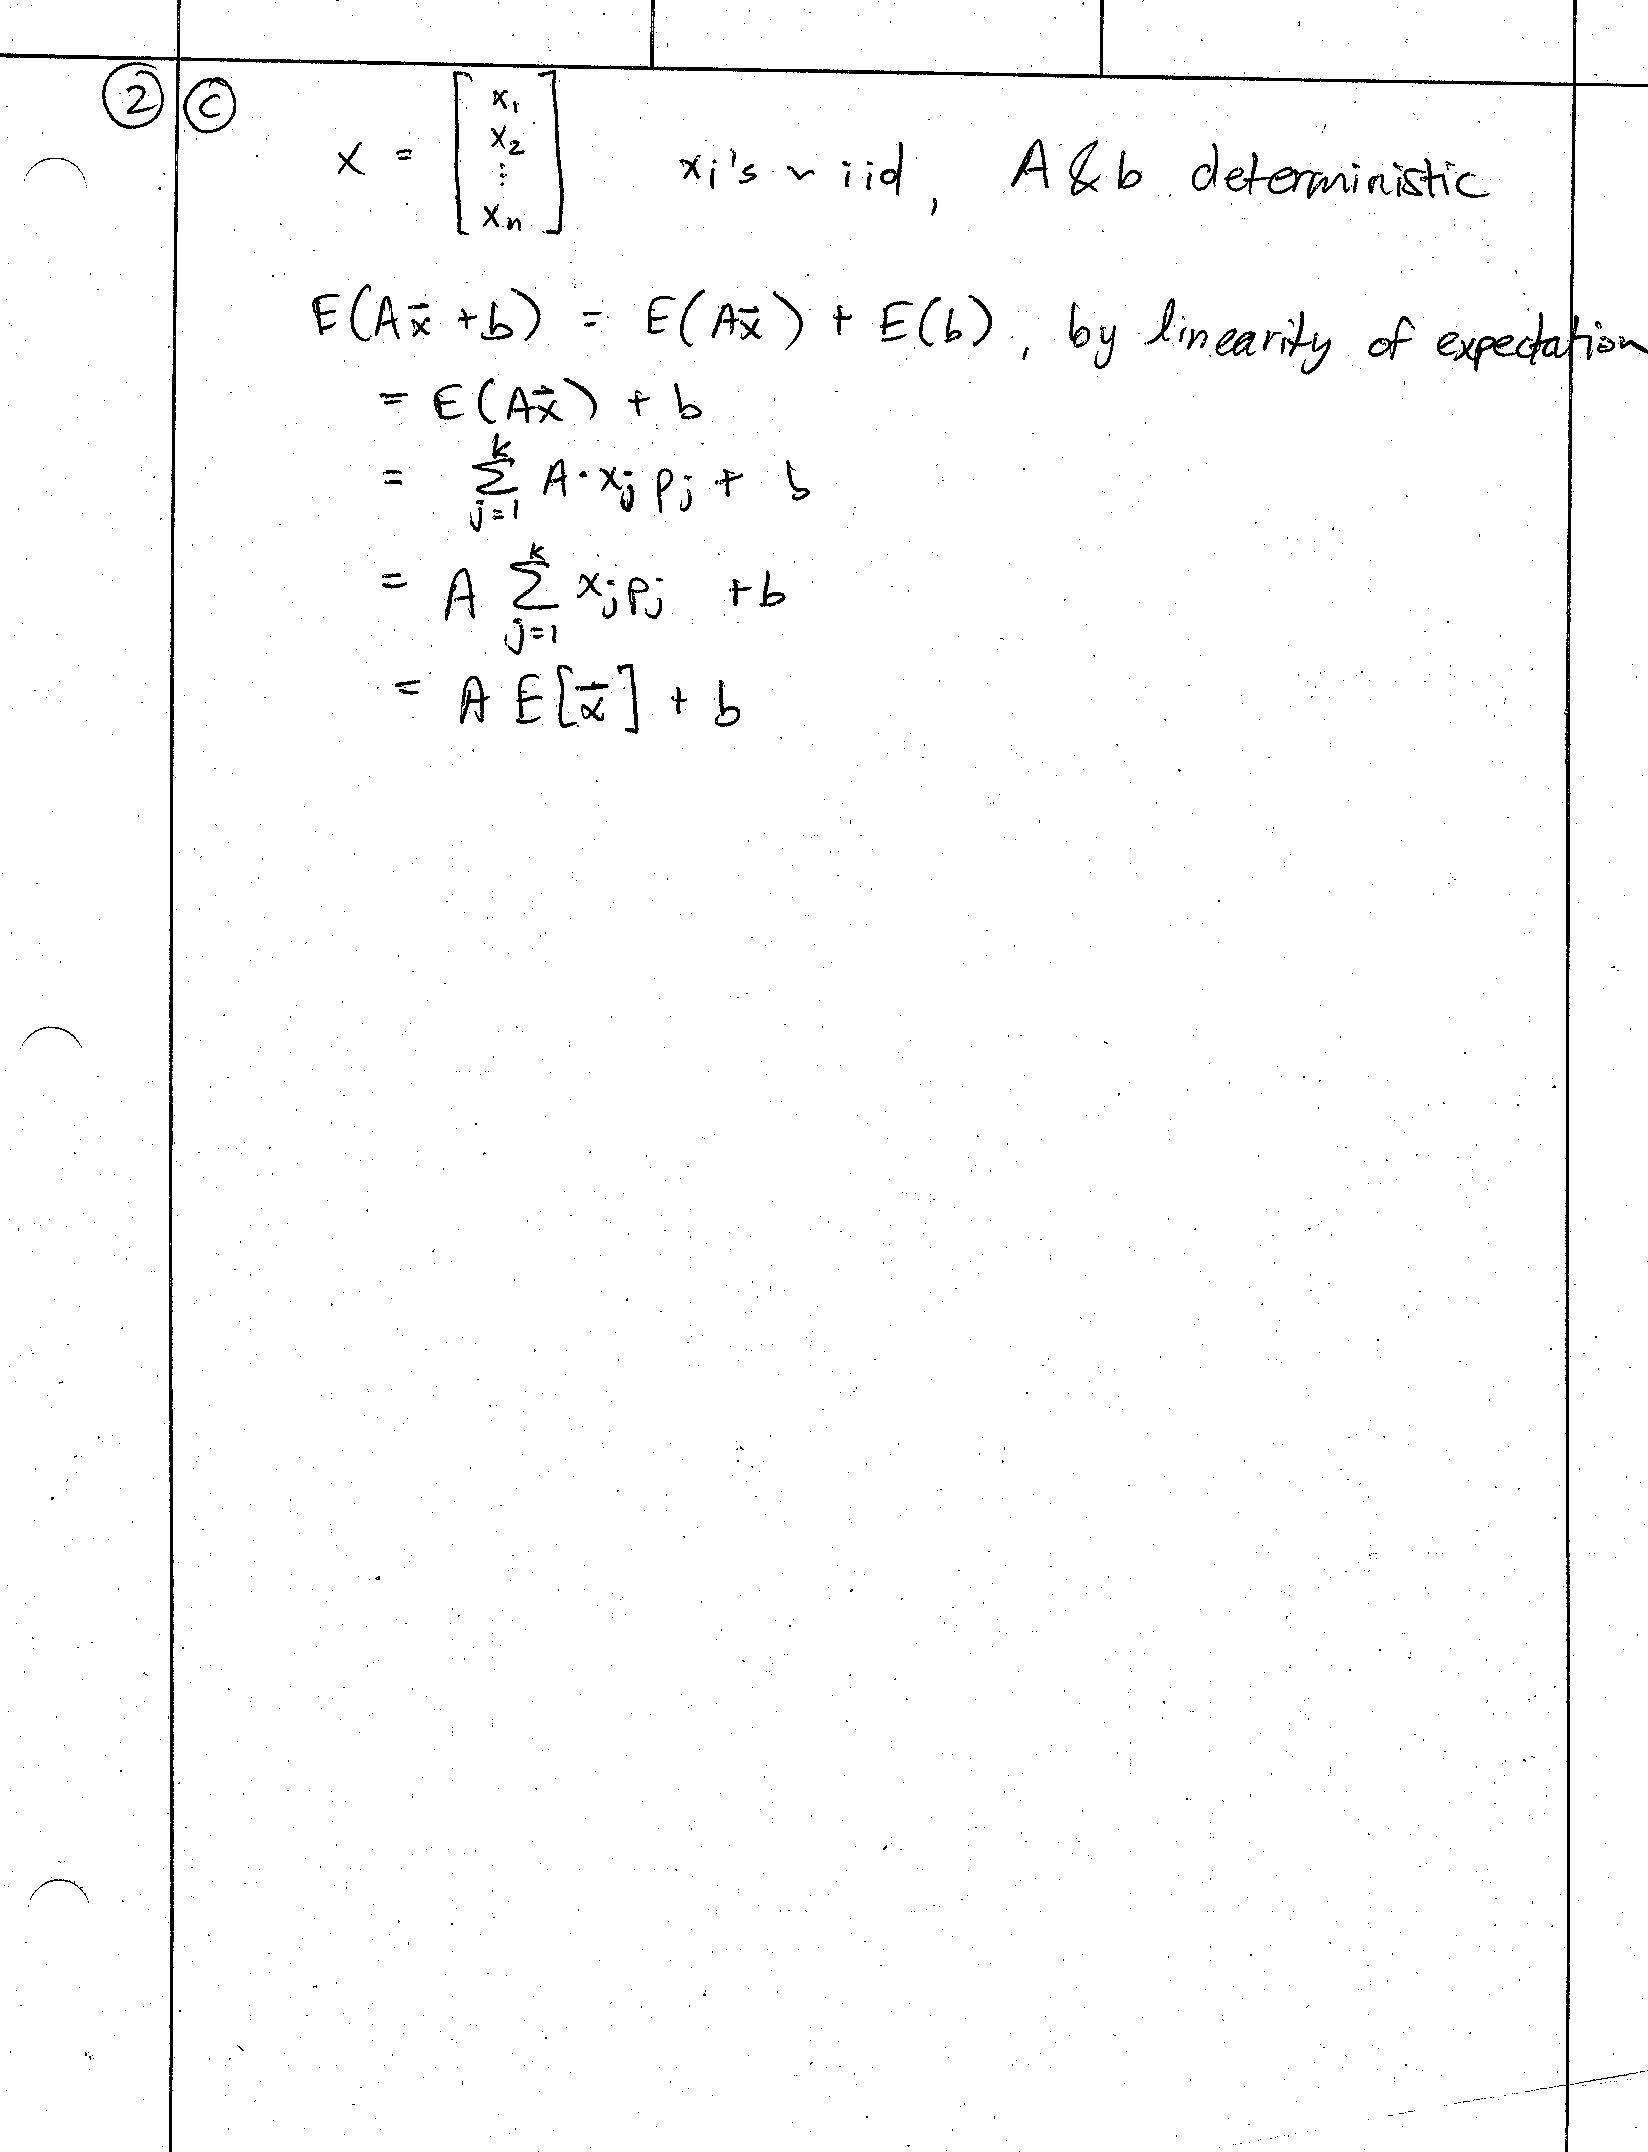 ② ⓒ
x = [x₁ x₂ ⋮ xₙ] xᵢ's ~ iid, A & b deterministic
E(Ax⃗ + b) = E(Ax⃗) + E(b), by linearity of expectation
= E(Ax⃗) + b
= ∑_{j=1}^{k} A·xⱼ pⱼ + b
= A ∑_{j=1}^{k} xⱼpⱼ + b
= A E[x⃗] + b